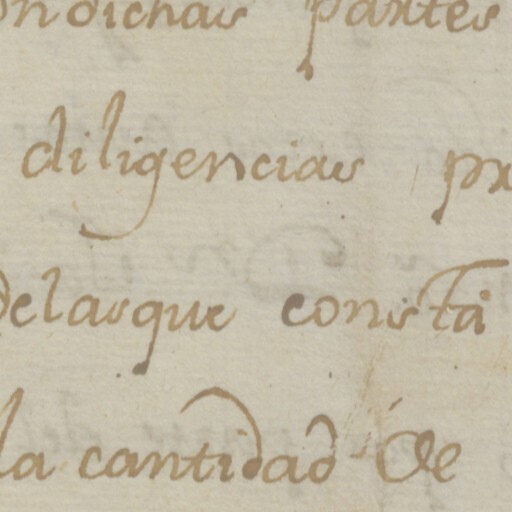 ondichas partes
diligencias pr
delasque consta
la cantidad de